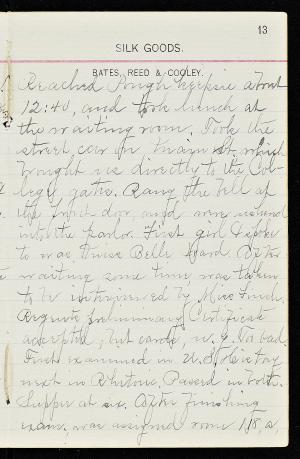 13
SILK GOODS.
BATES, REED & COOLEY.
Reached Poughkeepsie about
12:40, and took lunch at
the waiting room. Took the
street car on Main st, which
brought us directly to the Col-
lege gate. Rang the bell at
the front door, and were ushered
into the parlor. First girl I spoke
to was Miss Belle Ward. After
waiting some time, was taken
to be interviewed by Miss
Regents preliminary Certificate
accepted, but
First examined in U.S. History
next in Rhetoric. Passed in both.
Supper at six. After finishing
exam. was assigned room 118,